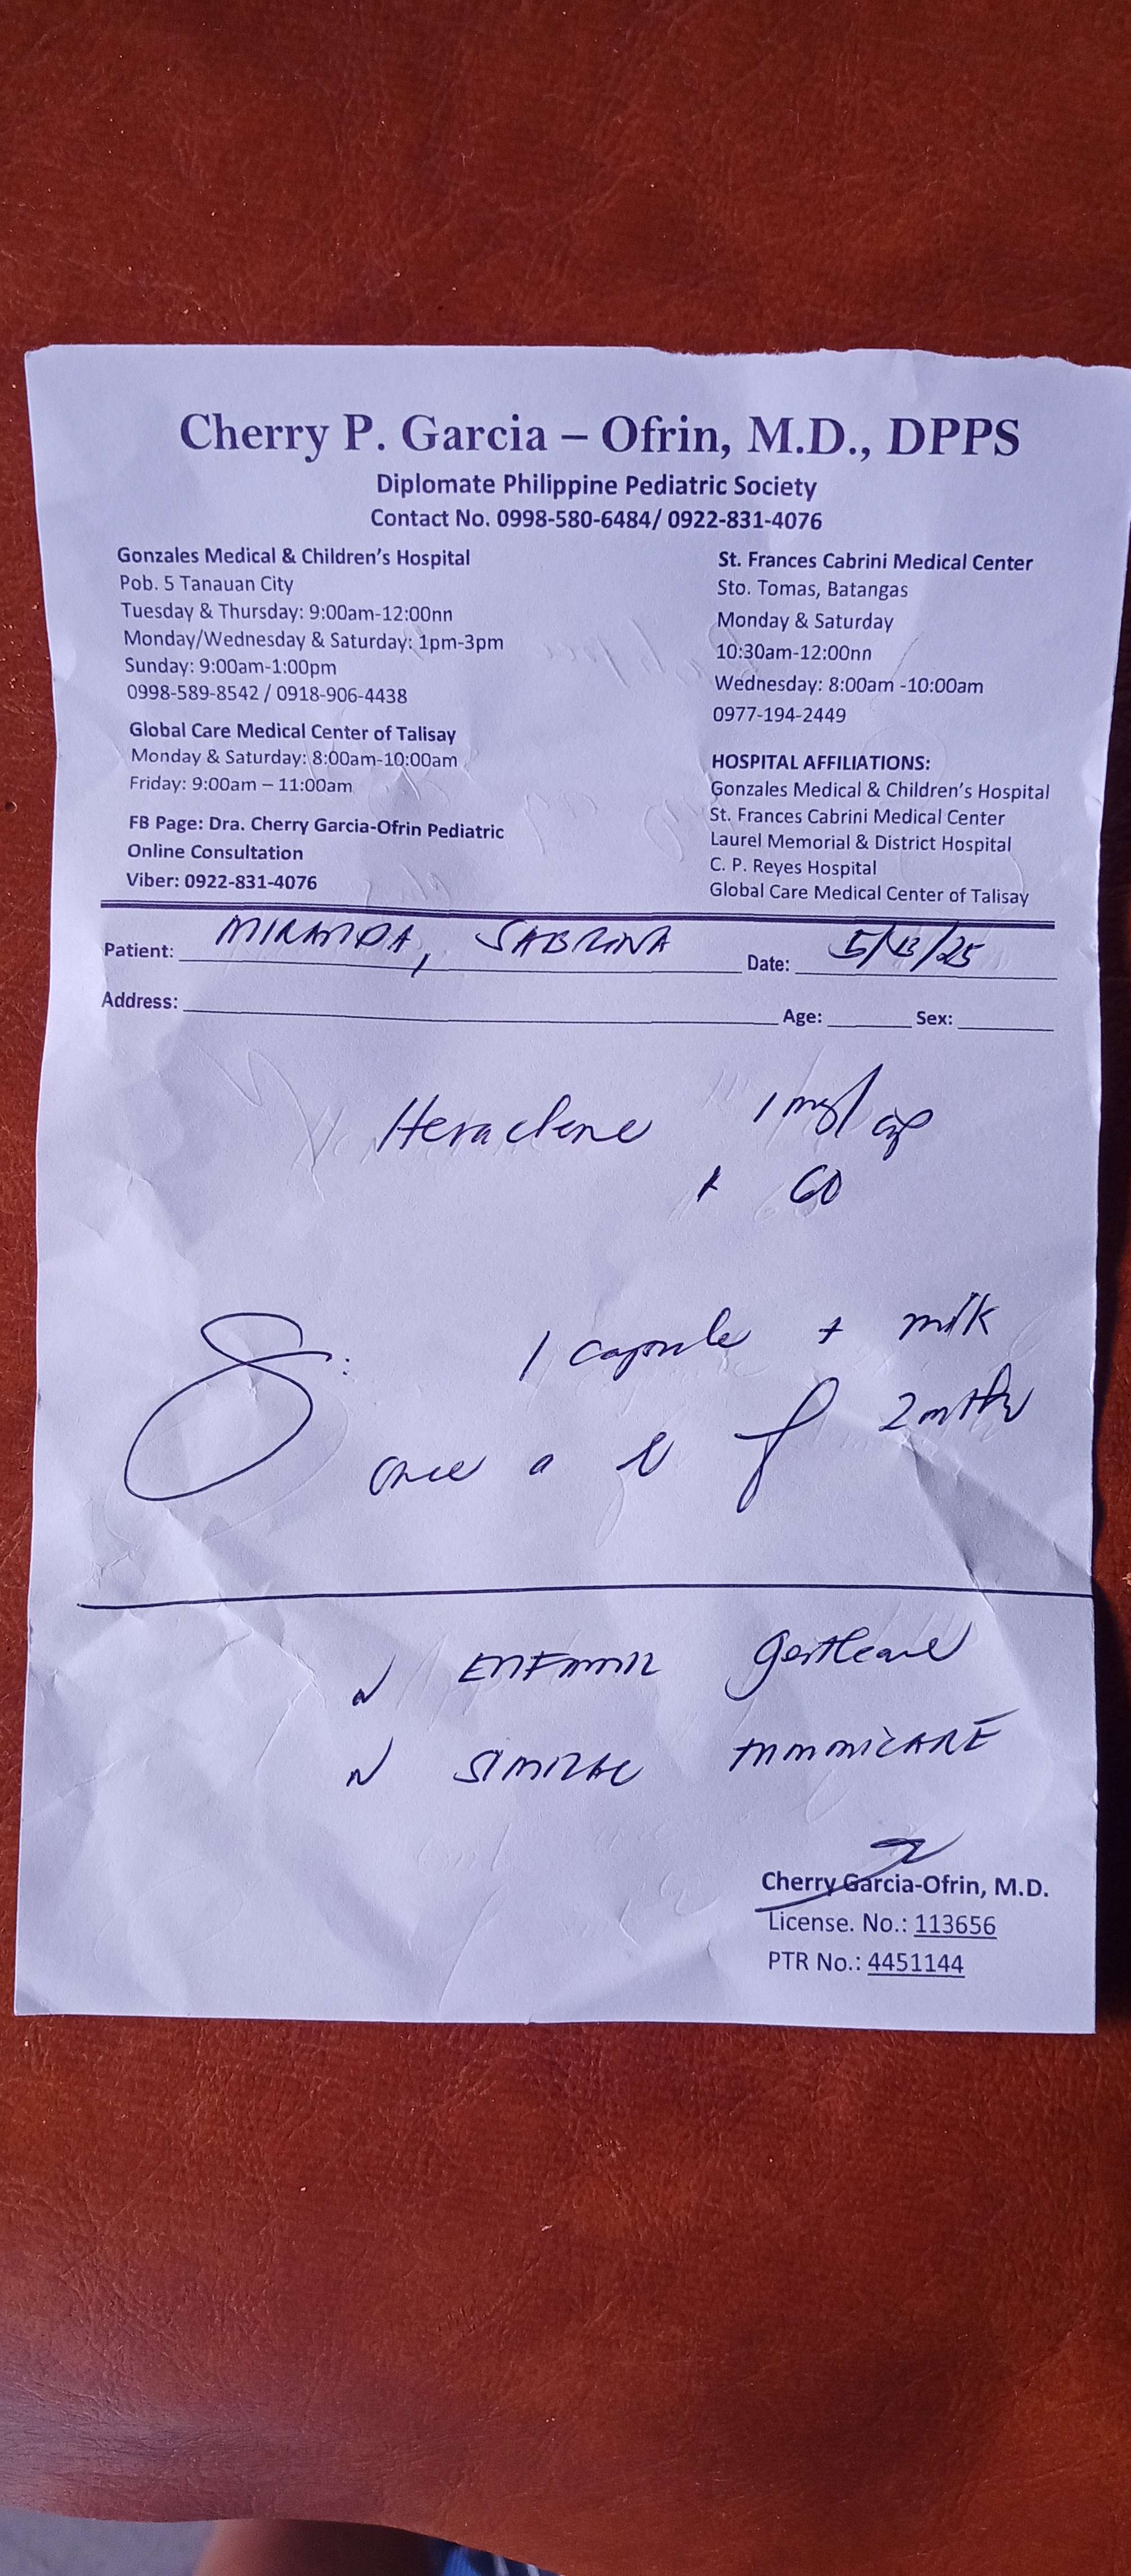 Cherry P. Garcia – Ofrin, M.D., DPPS
Diplomate Philippine Pediatric Society
Contact No. 0998-580-6484/ 0922-831-4076
Gonzales Medical & Children's Hospital
Pob. 5 Tanauan City
Tuesday & Thursday: 9:00am-12:00nn
Monday/Wednesday & Saturday: 1pm-3pm
Sunday: 9:00am-1:00pm
0998-589-8542 / 0918-906-4438
Global Care Medical Center of Talisay
Monday & Saturday: 8:00am-10:00am
Friday: 9:00am – 11:00am
FB Page: Dra. Cherry Garcia-Ofrin Pediatric
Online Consultation
Viber: 0922-831-4076
St. Frances Cabrini Medical Center
Sto. Tomas, Batangas
Monday & Saturday
10:30am-12:00nn
Wednesday: 8:00am -10:00am
0977-194-2449
HOSPITAL AFFILIATIONS:
Gonzales Medical & Children's Hospital
St. Frances Cabrini Medical Center
Laurel Memorial & District Hospital
C. P. Reyes Hospital
Global Care Medical Center of Talisay
Patient: MIRANDA, SABRINA Date: 5/13/25
Address: Age: Sex:
Heraclene 1mg/cap
# 60
S: 1 capsule + milk
once a f 2mths
ENFAMIL gentlease
SIMILAC TUMMICARE
Cherry Garcia-Ofrin, M.D.
License. No.: 113656
PTR No.: 4451144